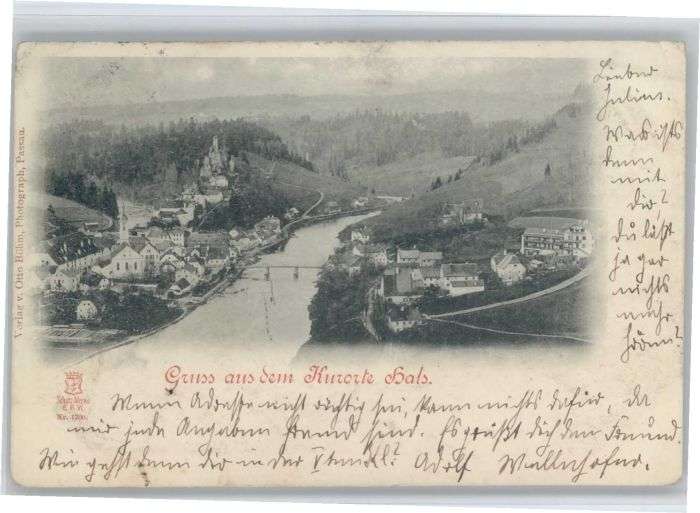 Verlag v. Otto Böhm, Photograph, Passau.
Lieber
Julius.
Was ists
denn
mit
dir?
Du läßt
ja gar
nichts
mehr
hören?
Gruss aus dem Kurorte Hals.
Schutz-Marke
Nr. 1200.
Wenn Adresse nicht richtig sei, kann nichts dafür, da
mir jede Angaben fremd sind. Es grüßt dich dein Freund
Wie gehst denn dir in der Adolf Wallnhofer.